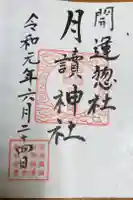 開運惣社
月讀神社
令和元年六月二十四日